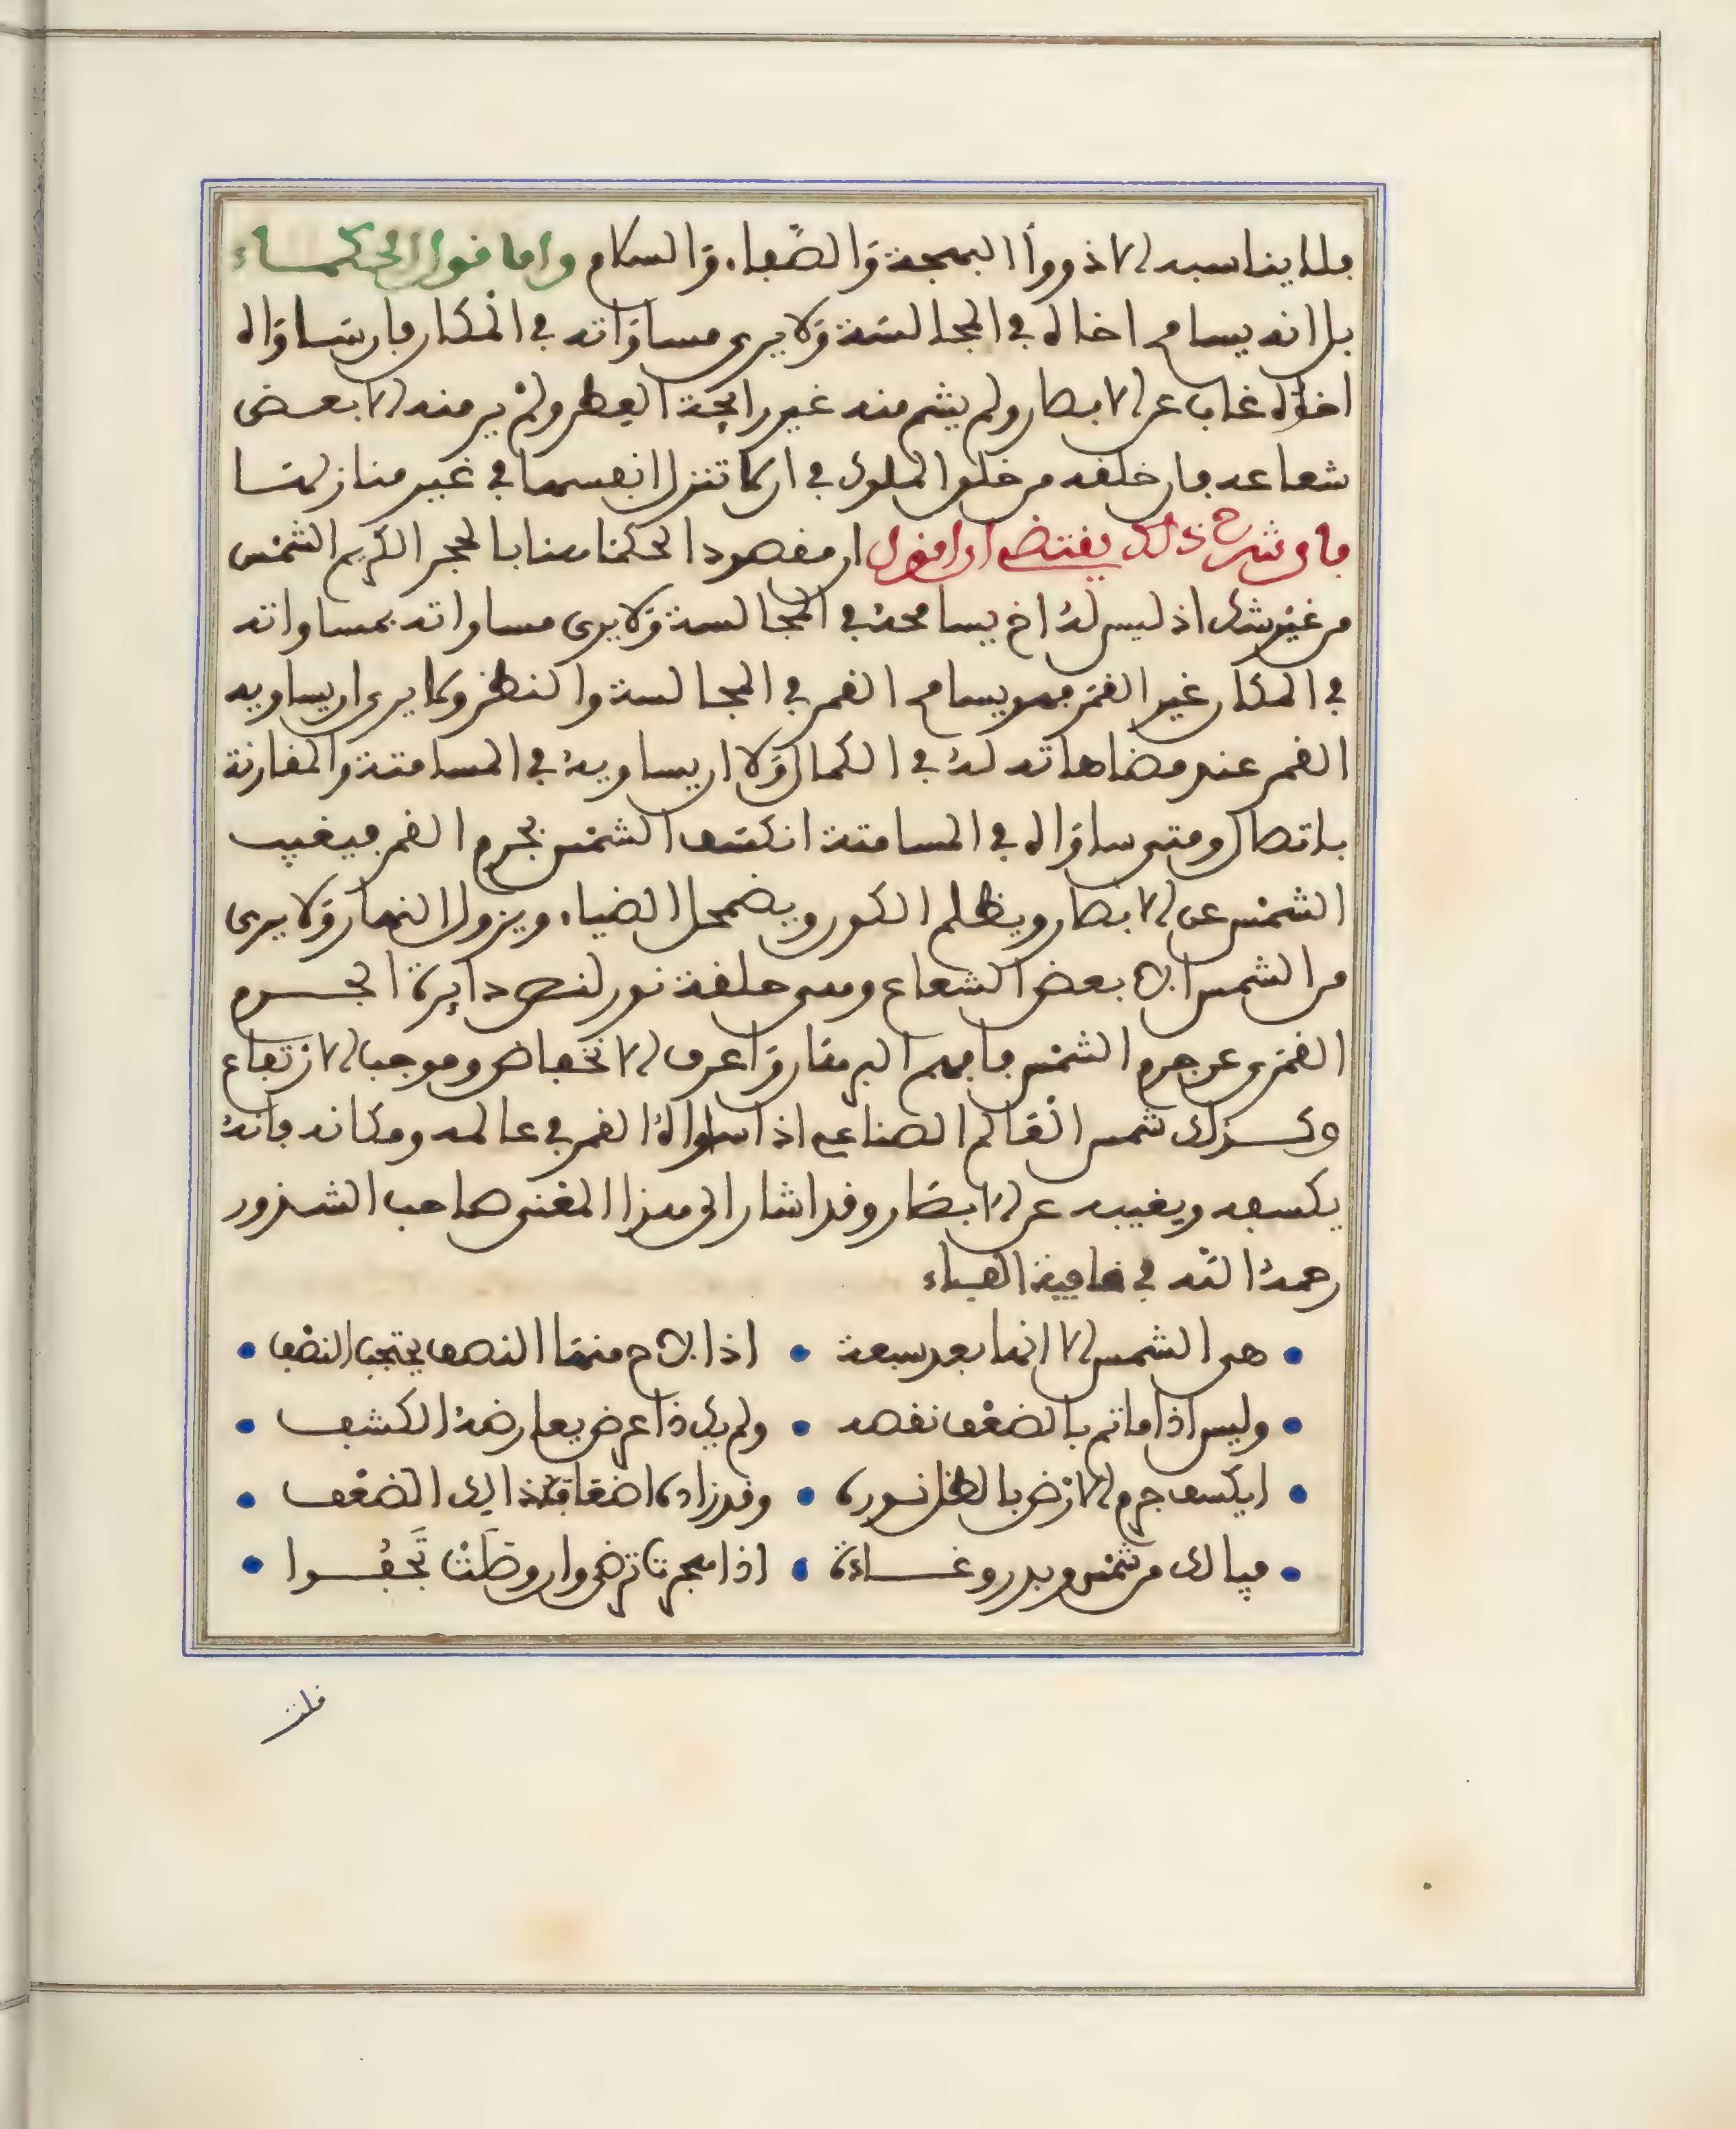 فلا يناسبه الا ذووا البهجة والصفاء والسلام واما قول الحكماء
بل انه يسامح اخاه في المجالسة ولا يرى مساواته في المكان فان ساواه
اخوه غاب عن الابصار ولم يشم منه غير رايحة العطر ولم ير منه الا بعض
شعاعه فان خلقه من خلق الملوك في ان لا تنزل انفسها في غير منازلها
فان شرح ذلك يقتضي ان اقول ان مقصود الحكما هنا بالحجر الكريم الشمس
من غير شك اذ ليس له اخ يسامحه في المجالسة ولا يرى مساواته بمساواته
في المكان غير القمر فهو يسامح القمر في المجالسة والنظر ولا يرى ان يساويه
القمر عند مضاهاته له في الكمال ولا ان يساويه في المسامتة والمقارنة
باتصال ومتى ساواه في المسامتة انكسف الشمس بجرم القمر فيغيب
الشمس عن الابصار ويظلم الكون ويضمحل الضياء ويزول النهار ولا يرى
من الشمس الا بعض الشعاع وهي حلقة نور لنقص دايرة الجرم
القمري عن جرم الشمس فافهم البرهان واعرف الانخفاض وموجب الارتفاع
وكذلك شمس العالم الصناعي اذا ساواه القمر في عالمه ومكانه فانه
يكسفه ويغيبه عن الابصار وقد اشار الى هذا المعنى صاحب الشذور
رحمه الله في قافية الفاء
هي الشمس الا انها بعد سبعة • اذا لاح منها النصف يحتجب النصف
وليس اذا ما تم بالضعف نقصه • ولم يك ذا عرض يعارضه الكشف
ايكسف جرم الارض بالظل نوره • وقد زاده اضعافه ذالك الضعف
فيالك من شمس وبدر وغادة • اذا هجرت ترضى وان وصلت تجفوا
قلت